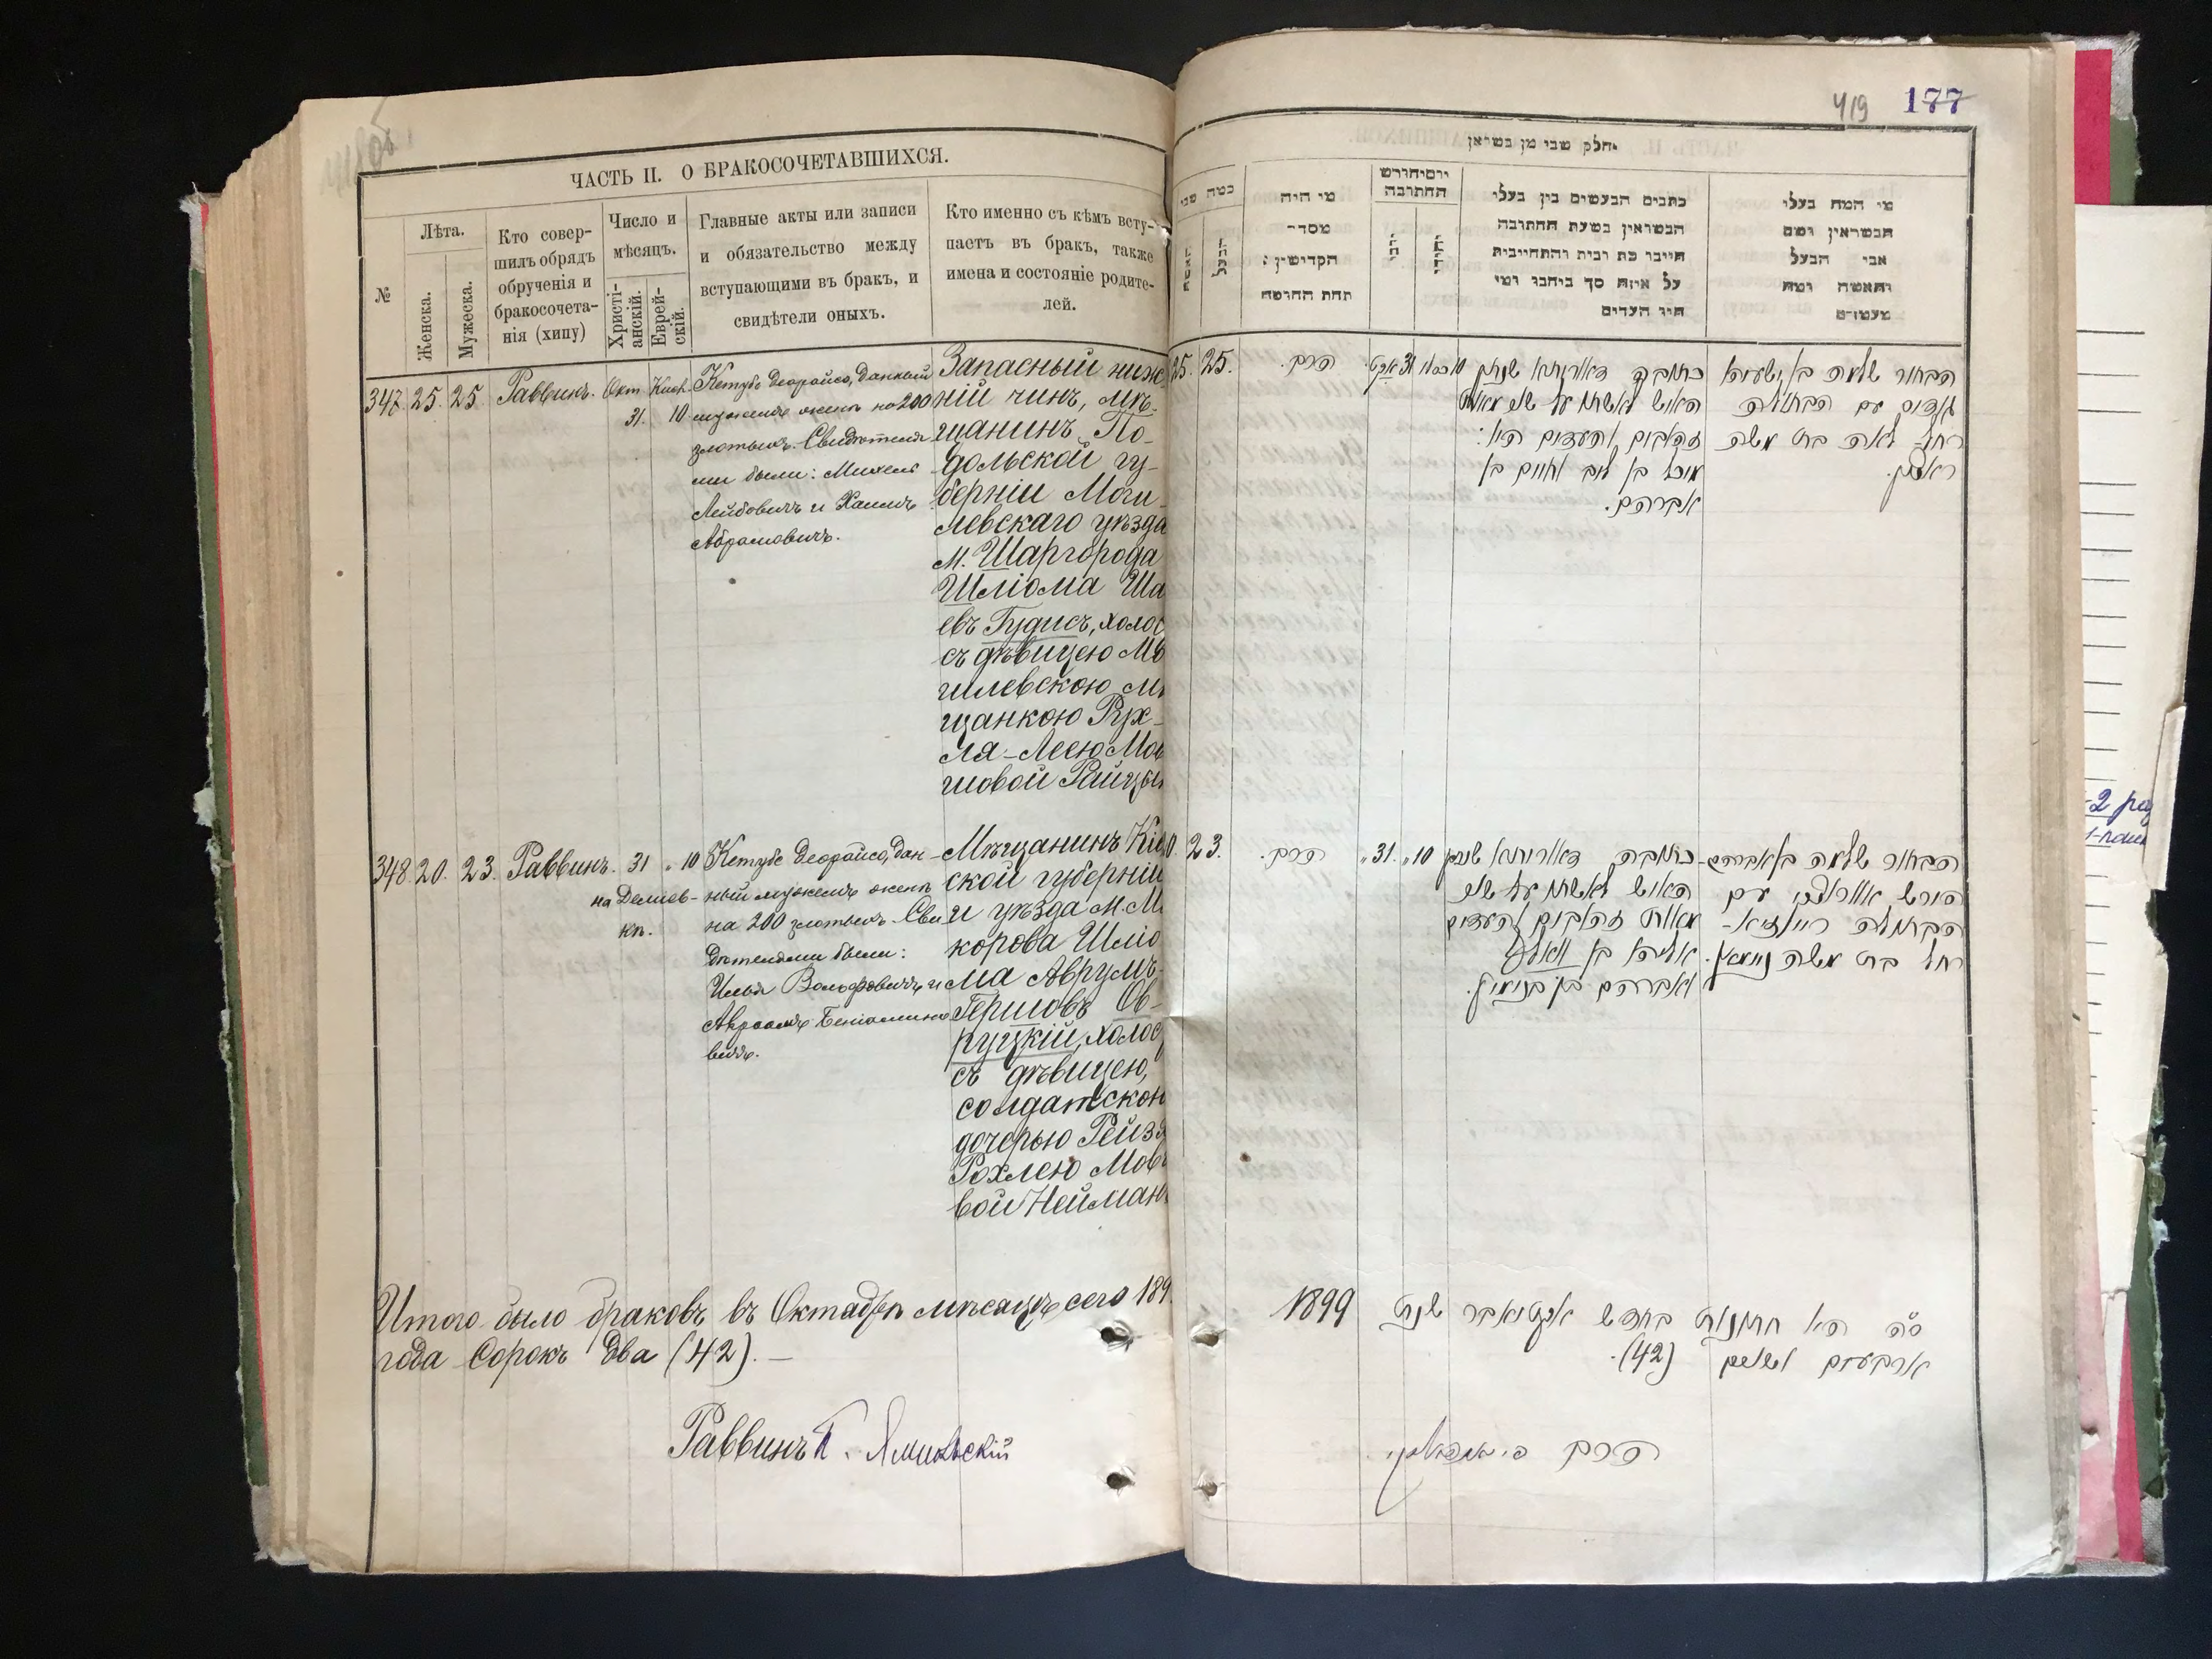 419 177
ЧАСТЬ II. О БРАКОСОЧЕТАВШИХСЯ.
№
Лѣта.
Женска.
Мужеска.
Кто совер-
шилъ обрядъ
обрученія и
бракосочета-
нія (хипу)
Число и
мѣсяцъ.
Христі-
анскій.
Еврей-
скій.
Главные акты или записи
и обязательство между
вступающими въ бракъ, и
свидѣтели оныхъ.
Кто именно съ кѣмъ всту-
паетъ въ бракъ, также
имена и состояніе родите-
лей.
347. 25. 25. Раввинъ. Окт. 31. 10
Кетубе деорайса, данный
мужемъ женѣ на 200
злотыхъ. Свидѣтеля
ми были: Михель
Лейбовичъ и Хаимъ
Абрамовичъ.
Запасный ниж
ній чинъ, мѣ-
щанинъ По-
дольской гу-
берніи Моги-
левскаго уѣзда
м. Шаргорода
Шліома Ша
евъ Гудисъ, холос
съ дѣвицею Мо
гилевскою мѣ
щанкою Рух-
ля-Леею Мов
шовой Райцын
348. 20. 23. Раввинъ. 31 " 10
на Демиев-
кѣ.
Кетубе деорайса, дан-
ный мужемъ женѣ
на 200 злотыхъ. Сви
дѣтелями были:
Илья Вольфовичъ и
Авраамъ Беніамино
вичъ.
Мѣщанинъ Кіев
ской губерніи
и уѣзда м. Ма
карова Шліо
ма Аврумъ-
Гершовъ Ов-
руцкій, холос
съ дѣвицею,
солдатскою
дочерью Рейзя
Рохлею Мов
вой Нейман
Итого было браковъ въ Октябрѣ мѣсяцѣ сего 189
года Сорокъ два (42).—
Раввинъ П. Ямпольскій
חלק שני מן בשואין
מי המה בעלי
הנשואין ושם
אבי הבעל
והאשה ומה
מעמדם
כתבים הנעשים בין בעלי
הנשואין בשעת החתובה
חייבו כת רבית והתחייבות
על איזה סך ביחבו ומי
היו העדים
יום וחודש
החתובה
יהודי
מי היה
מסדר
הקדישין:
תחת החופה
כמה שני
הבעל
האשה
25. 25. הרב. 31 10
כתובה דאורייתא שנתן
האיש לאשתו על שני מאות
זהובים והעדים היו:
מיכל בן ליב וחיים בן
אברהם.
הבחור שלמה בן ישעיה
גודיס עם הבתולה
רחל לאה בת משה
ראיצין.
23. הרב. " 31. " 10
כתובה דאורייתא שנתן
האיש לאשתו על שני
מאות זהובים והעדים
אליהו בן וואלף
ואברהם בן בנימין.
הבחור שלמה בן אברהם-
הירש אווראצקי עם
הבתולה רייזיא-
רחל בת משה ניימאן.
ס"ה היו חתונות בחדש אקטאבר שנת 1899
ארבעים ושנים (42).
הרב פ. יאמפאלסקי